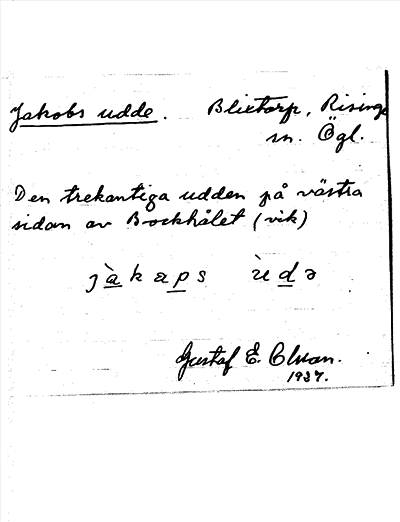 Jakobs udde. Blixtorp, Risinge
sn. Ögl.
Den trekantiga udden på västra
sidan av Bockhålet (vik)
jàkaps ùdə
Gustaf E. Olsson.
1937.